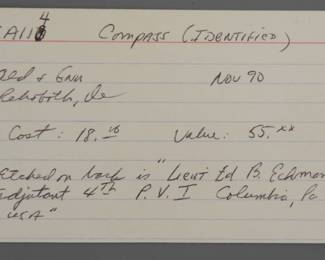 A110 4 Compass (Identified)
Nov 90
Rehoboth, De
Cost: 18.00 Value: 55.xx
etched on back is "Lieut Ed B. Eckman
adjutant 4TH P.V.I Columbia, Pa
USA"